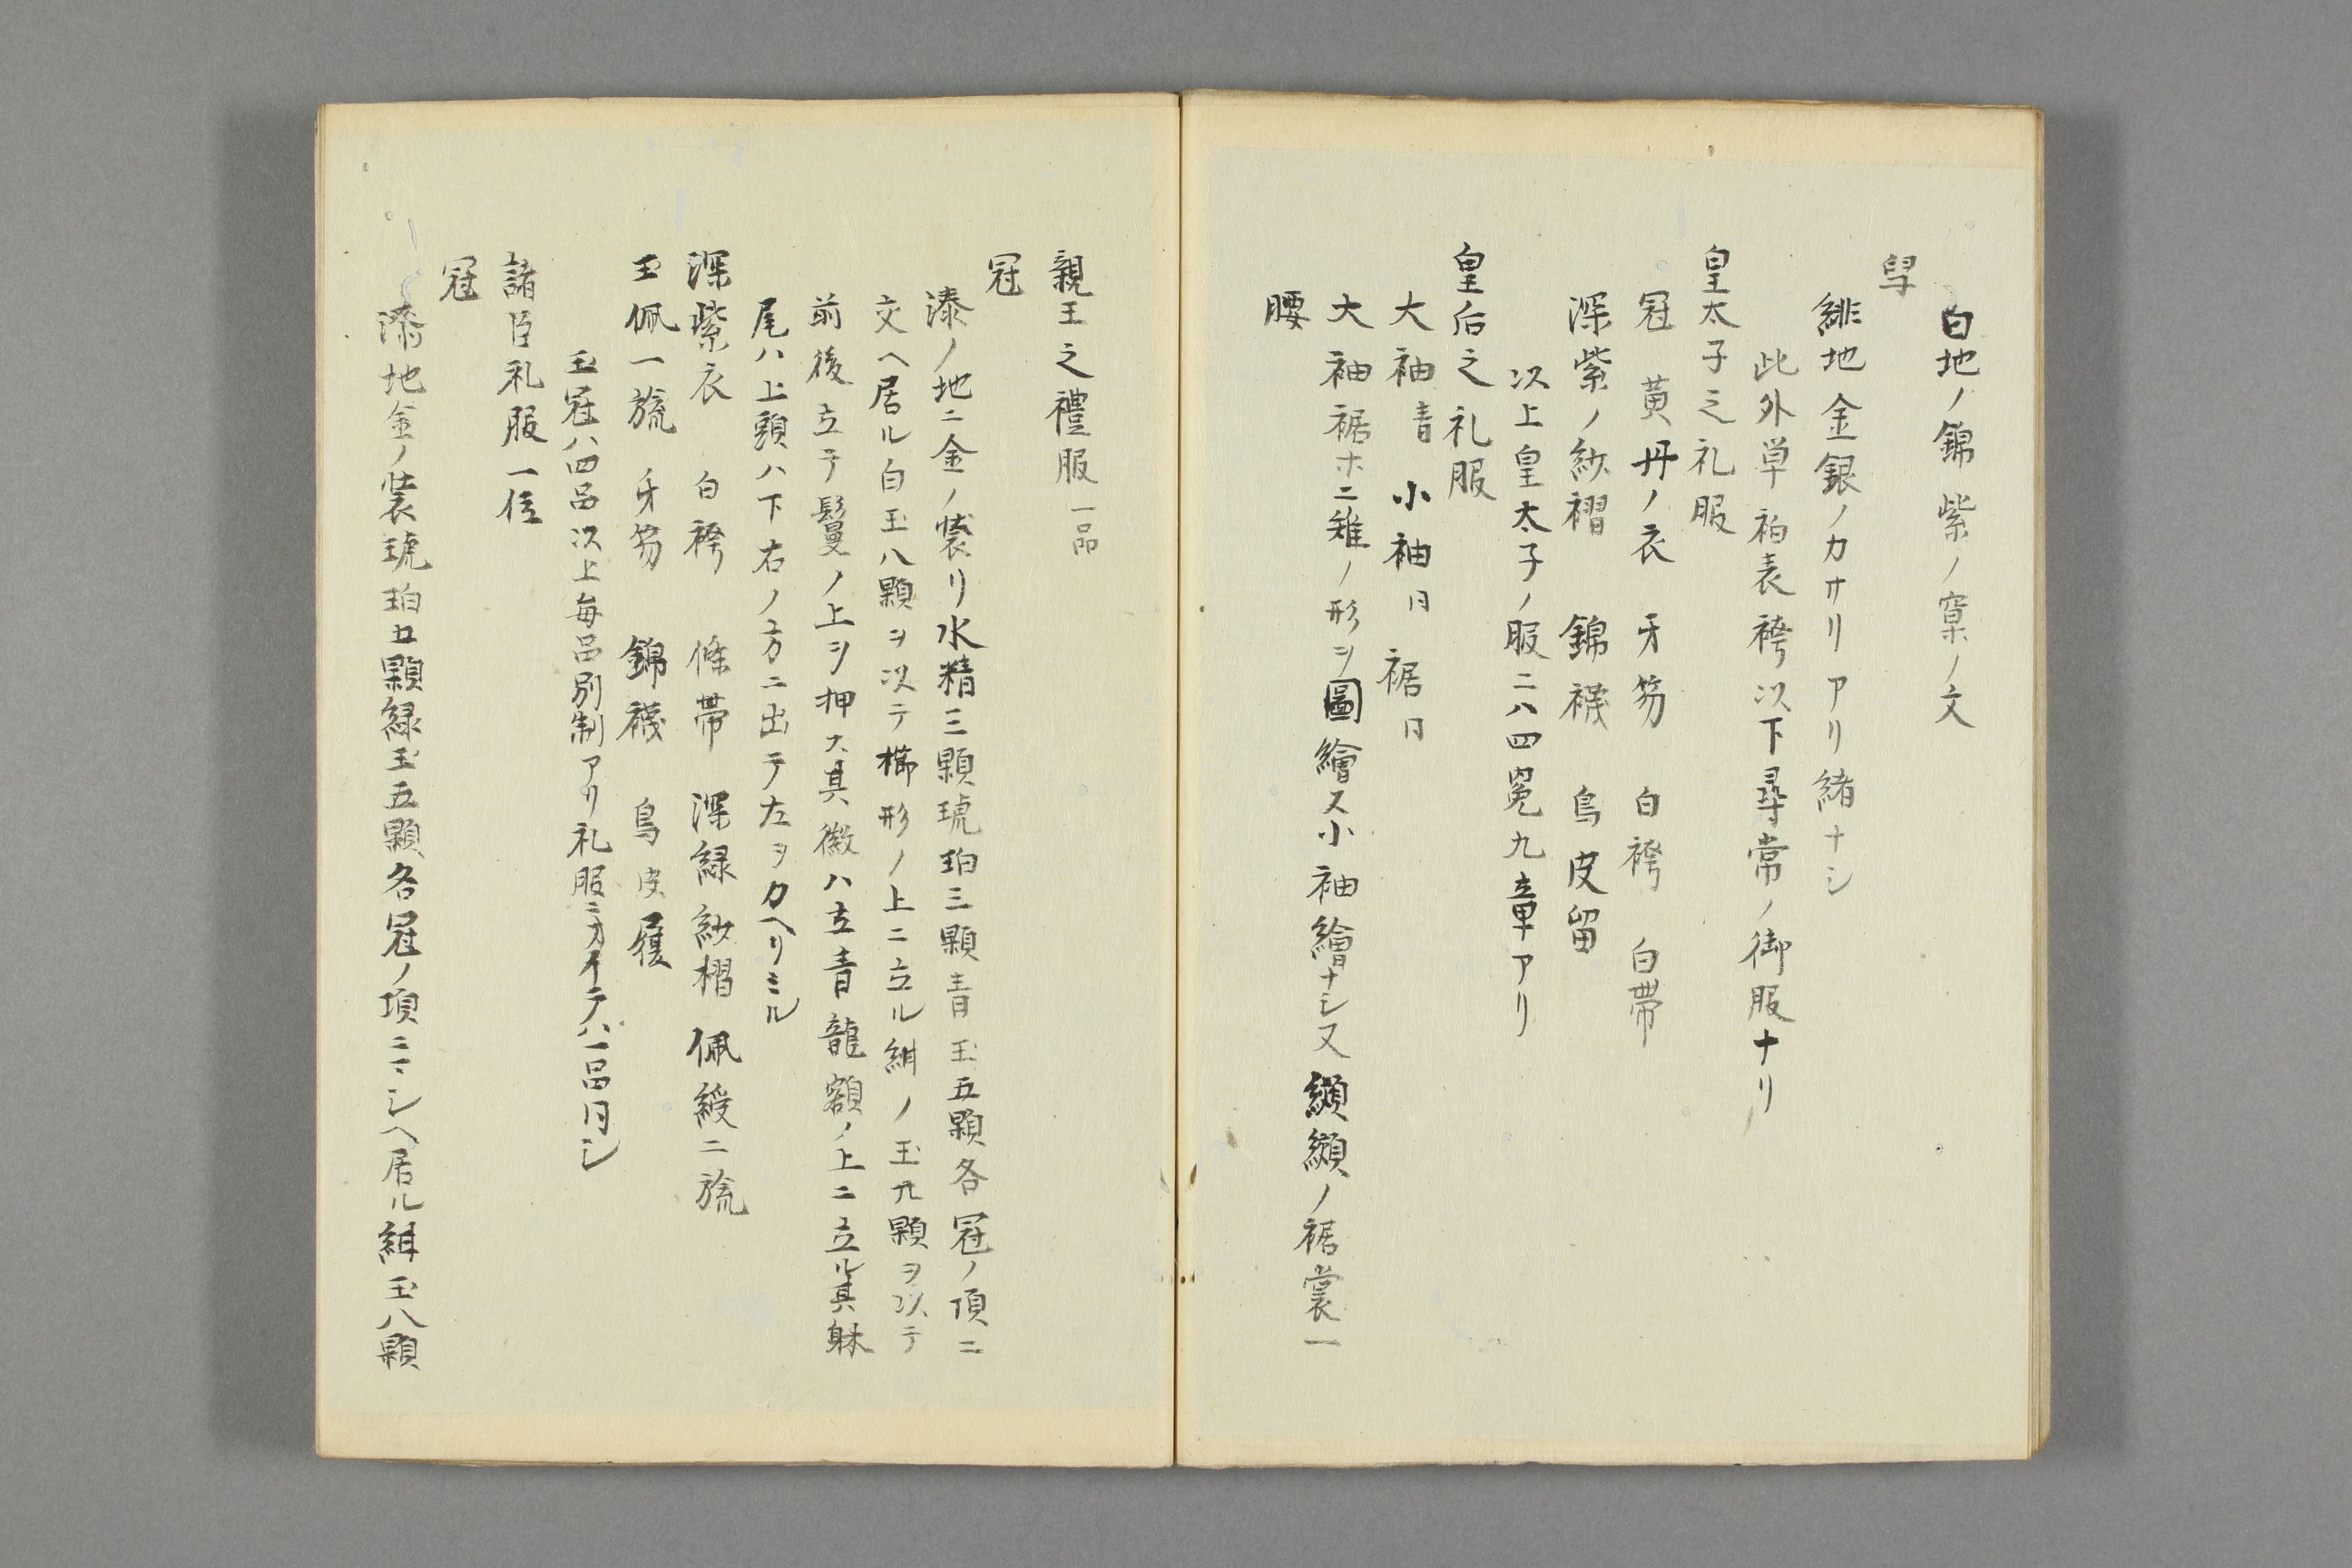 白地ノ錦紫ノ窠ノ文
舄
緋地金銀ノカサリアリ緒ナシ
此外単袙表袴以下尋常ノ御服ナリ
皇太子之礼服
冠 黄丹ノ衣 牙笏 白袴 白帯
深紫ノ紗褶 錦襪 烏皮留
以上皇太子ノ服ニハ四冕九章アリ
皇后之礼服
大袖青 小袖同 裾同
大袖裾ホニ雉ノ形ヲ圖繪ス小袖繪ナシ又纐纈ノ裾裳一
腰
親王之禮服一品
冠
漆ノ地ニ金ノ装リ水精三顆琥珀三顆青玉五顆各冠ノ頂ニ
交ヘ居ル白玉八顆ヲ以テ櫛形ノ上ニ立ル紺ノ玉廿顆ヲ以テ
前後立テ鬘ノ上ヲ押ス其徽ハ立青龍額ノ上ニ立ル其躰
尾ハ上頭ハ下右ノ方ニ出テ左ヲカヘリミル
深紫衣 白袴 條帯 深緑紗褶 佩綬二旒
玉佩一旒 牙笏 錦襪 烏皮履
玉冠ハ四品以上毎品別制アリ礼服ニオイテハ一品同シ
諸臣礼服一位
冠
漆地金ノ装琥珀五顆緑玉五顆各冠ノ頂ニマシヘ居ル紺玉八顆